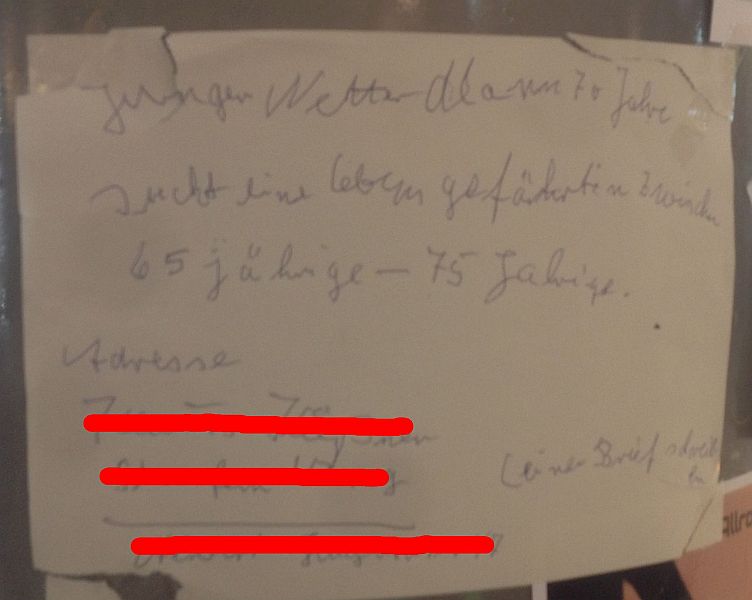 Junger Netter Mann 70 Jahre
sucht eine lebens gefährtin zwischen
65 jährige – 75 Jahrige.
Adresse
(einen Brief schreib
en
Allro